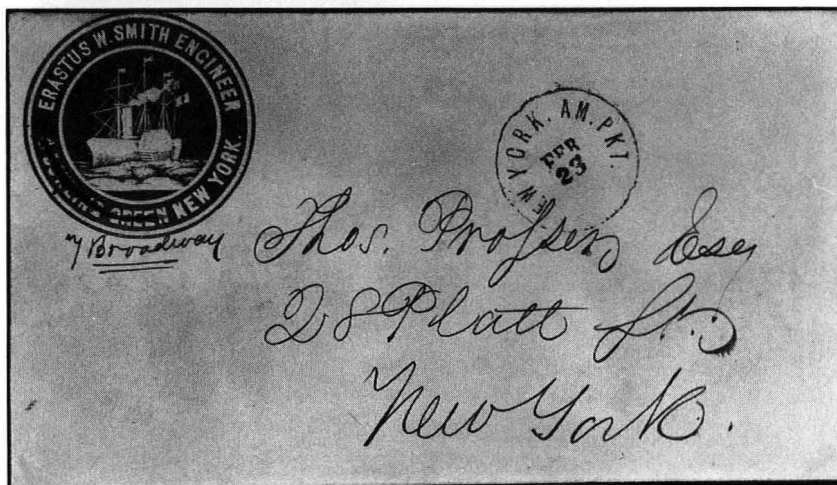 ERASTUS W. SMITH ENGINEER
BOWLING GREEN NEW YORK.
Broadway
NEW YORK. AM. PKT.
FEB
23
Thos. Prosser, Esq
28 Platt St.
New York.